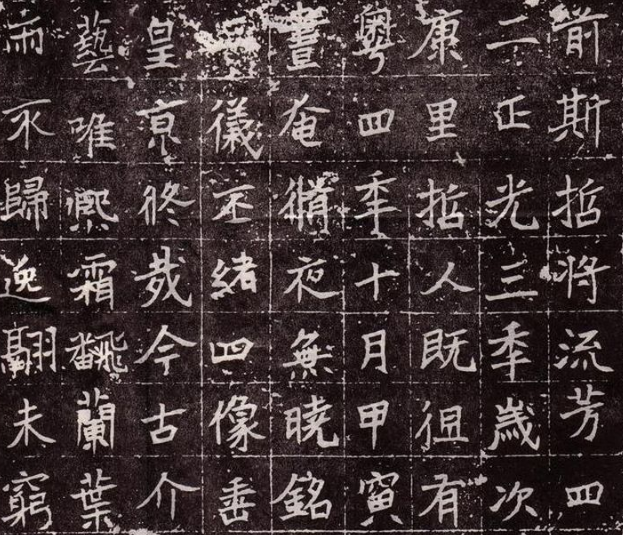 前斯哲将流芳四
二正光三秊歲次
康里哲人既徂有
粵四秊十月甲寅
晝奄脩夜無曉銘
儀丕緒四像垂
皇亰終哉今古介
藝唯熙霜飜蘭葉
不歸逸翮未窮